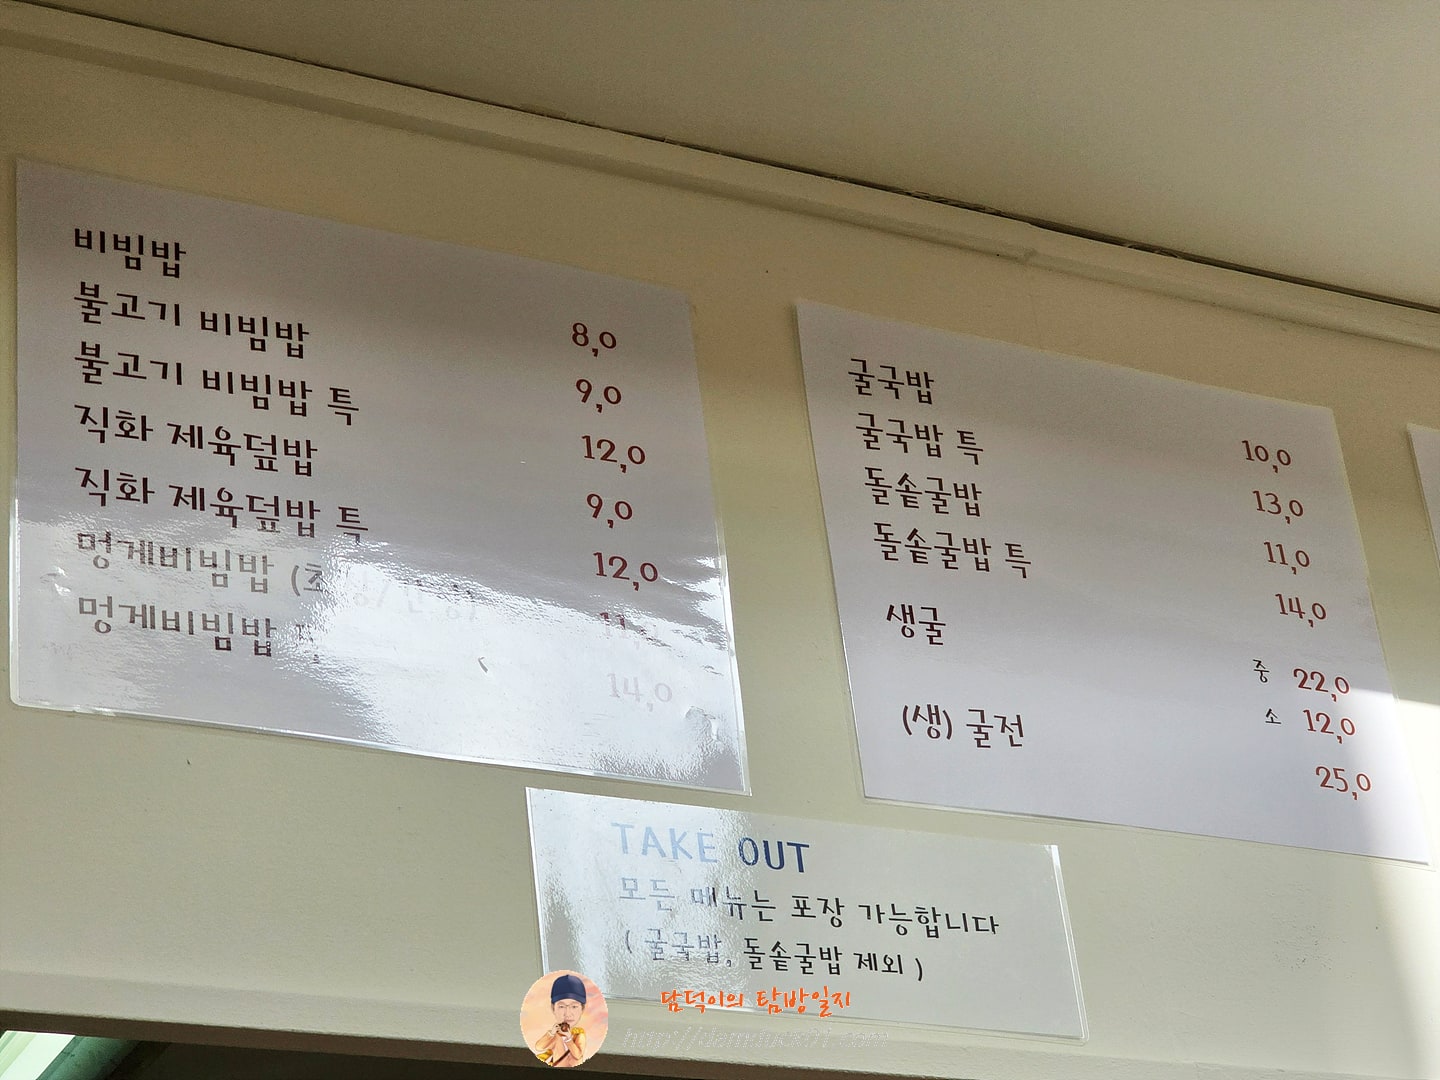 비빔밥 8,0
불고기 비빔밥 9,0
불고기 비빔밥 특 12,0
직화 제육덮밥 9,0
직화 제육덮밥 특 12,0
멍게비빔밥
멍게비빔밥 14,0
굴국밥 10,0
굴국밥 특 13,0
돌솥굴밥 11,0
돌솥굴밥 특 14,0
생굴 중 22,0
소 12,0
(생) 굴전 25,0
TAKE OUT
모든 메뉴는 포장 가능합니다
( 굴국밥, 돌솥굴밥 제외 )
담덕이의 탐방일지